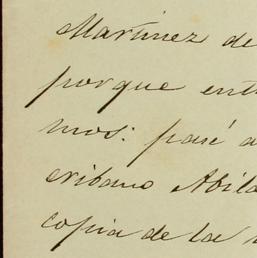 Martinez de
porque entr
mos: pasé a
cribano Abila
copia de la